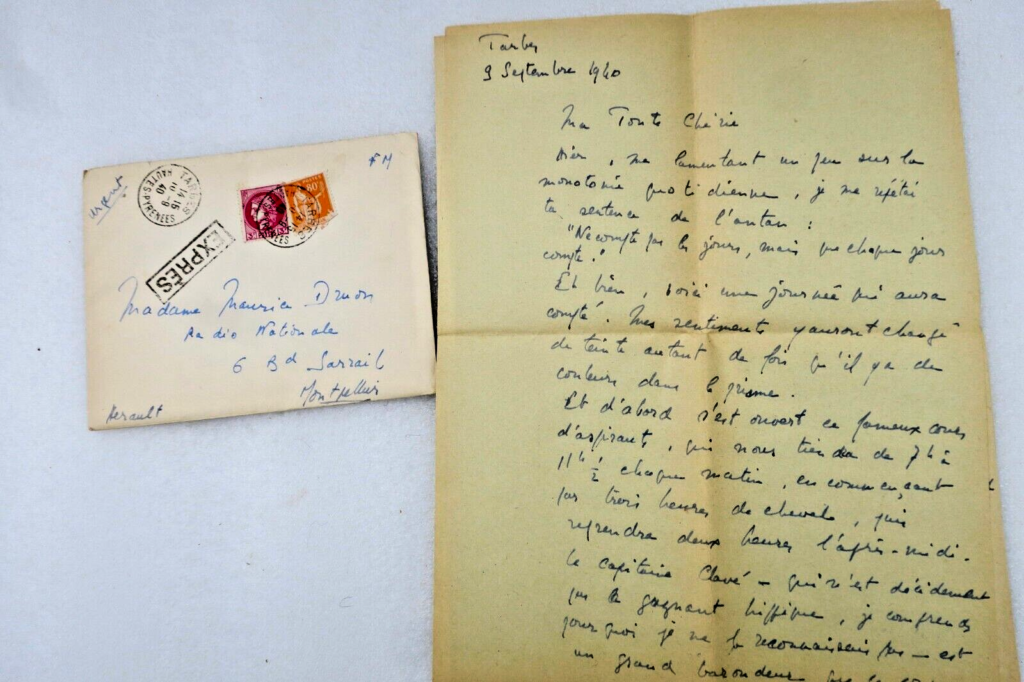 urgent
FM
TARBES
14 15
10 9
40
HAUTES-PYRENEES
EXPRÈS
Madame Maurice Druon
Radio Nationale
6 Bd Sarrail
Montpellier
Herault
Tarbes
9 Septembre 1940
Ma Toute Chérie
Hier, me lamentant un peu sur la
monotonie quotidienne, je me répétai
ta sentence de l'antan :
"Ne compte pas les jours, mais que chaque jour
compte."
Et bien, voici une journée qui aura
compté. Mes sentiments y auront changé
de teinte autant de fois qu'il y a de
couleurs dans le prisme.
Et d'abord s'est ouvert ce fameux cours
d'aspirants, qui nous tiendra de 7h à
11h ½ chaque matin, en commençant
par trois heures de cheval, puis
reprendra deux heures l'après-midi.
Le capitaine Clavé – qui n'est décidement
pas le gagnant hippique, je comprends
pourquoi je ne le reconnaissais pas – est
un grand baroudeur